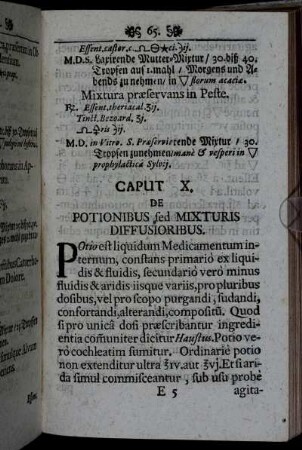 65.
Essent. castor. c. ☊ 🜔 ✶ ci. ʒij.
M.D.S. Laxirende Mutter-Mixtur / 30. biß 40.
Tropfen auf 1. mahl / Morgens und A-
bends zu nehmen / in ▽ florum acaciæ.
Mixtura præservans in Peste.
℞. Essent. theriacal. ℥ij.
Tinct. Bezoard. ℥j.
ʒij.
M.D. in Vitro. S. Præservirende Mixtur / 30.
Tropfen zunehmen / mane & vesperi in ▽
prophylactica Sylvij.
CAPUT X.
DE
POTIONIBUS sed MIXTURIS
DIFFUSIORIBUS.
Potio est liquidum Medicamentum in-
ternum, constans primario ex liqui-
dis & fluidis, secundario verò minus
fluidis & aridis iisque variis, pro pluribus
dosibus, vel pro scopo purgandi, sudandi,
confortandi, alterandi, compositũ. Quod
si pro unicâ dosi præscribantur ingredi-
entia comuniter dicitur Haustus. Potio ve-
rò cochleatim sumitur. Ordinariè potio
non extenditur ultra ℥iv. aut ℥vj. Et si ari-
da simul commisceantur, sub usu probè
E 5 agita-